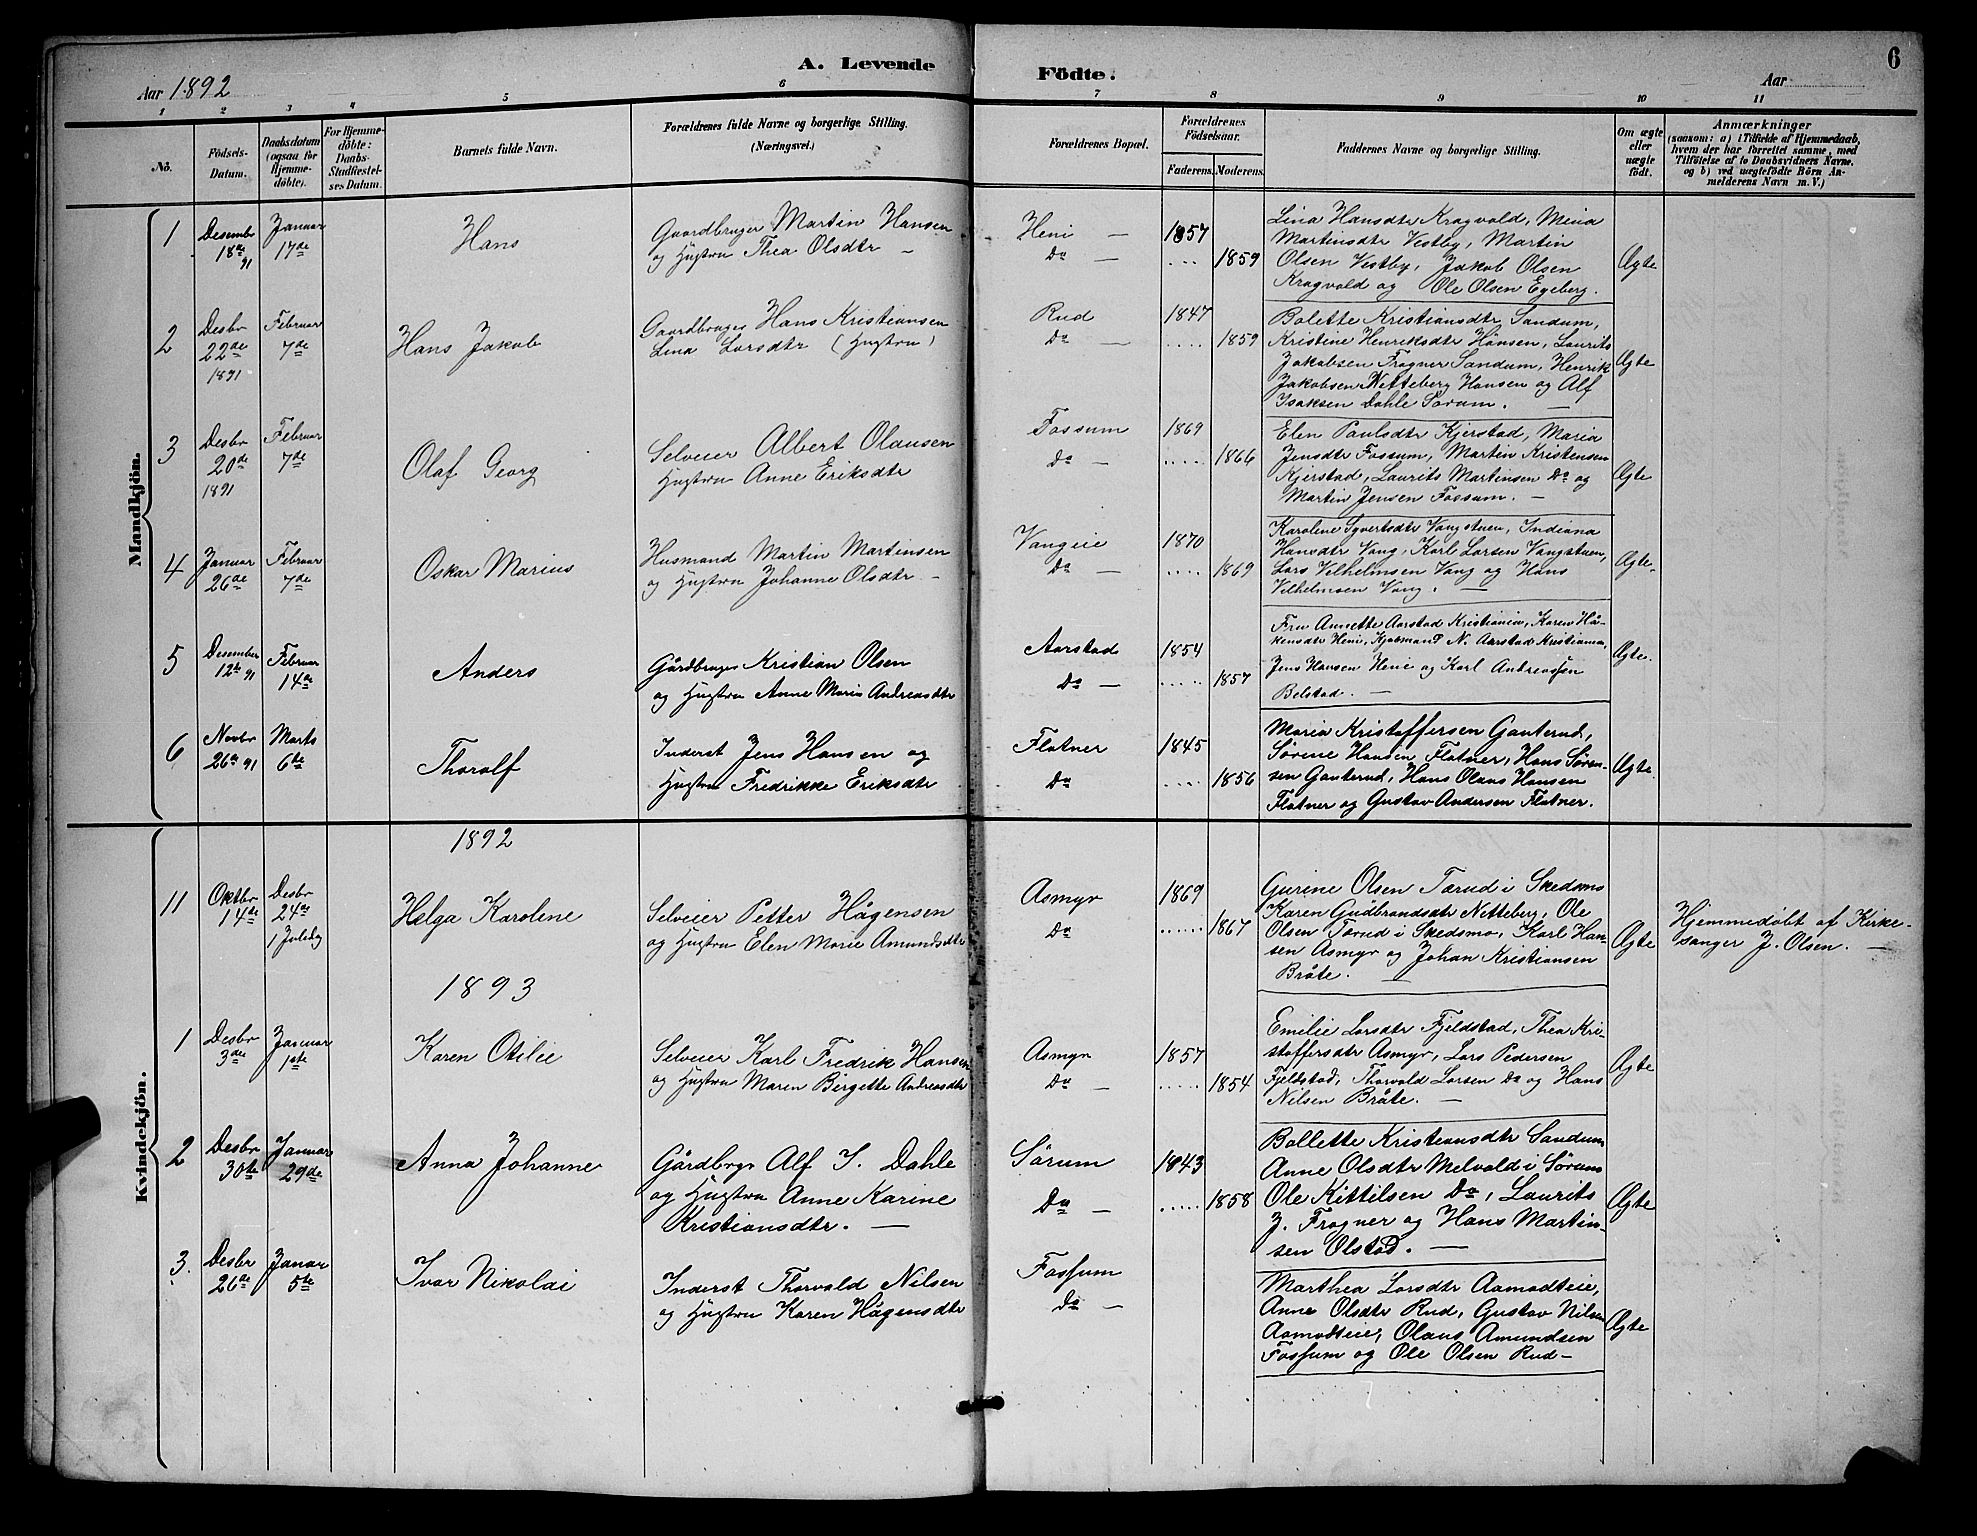 6
A. Levende Födte.
Aar 1892
Aar
1 2 3 4 5 6 7 8 9 10 11
No.
Födsels-
Datum.
Daabsdatum
(ogsaa for
Hjemme-
döbte).
For Hjemme-
döbte:
Daabs-
Stadfæstel-
ses Datum.
Barnets fulde Navn.
Forældrenes fulde Navne og borgerlige Stilling.
(Næringsvei.)
Forældrenes Bopæl.
Forældrenes
Födselsaar.
Faderens. Moderens.
Faddernes Navne og borgerlige Stilling.
Om ægte
eller
uægte
födt.
Anmærkninger
(saasom: a) i Tilfælde af Hjemmedaab,
hvem der har forrettet samme, med
Tilföielse af to Daabsvidners Navne.
og b) ved uægtefödte Börn An-
melderens Navn m. V.)
Mandkjön.
1
Desembr
18de 91
Januar
17de
Hans
Gaardbruger Martin Hansen
og Hustru Thea Olsdtr –
Heni –
Do –
1857
1859
Lina Hansdtr Kragvold, Mina
Martinsdtr Vestby, Martin
Olsen Vestby, Jakob Olsen
Kragvold og Ole Olsen Egeberg.
Ægte
2
Desbr
22de
1891
Februar
7de
Hans Jakob
Gaardbruger Hans Kristiansen
Lina Larsdtr (Hustru)
Rud
Do –
1847
1859
Bolette Kristiansdtr Sandum,
Kristine Henriksdtr Hansen, Laurits
Jakobsen Frogner Sandum, Henrik
Jakobsen Netteberg Hansen og Alf
Isaksen Dahle Sørum. –
Ægte
3
Desbr
20de
1891
Februar
7de
Olaf Georg
Selveier Albert Olausen
Hustru Anne Eriksdtr
Fossum
Do –
1869
1866
Elen Paulsdtr Kjerstad, Maria
Jensdtr Fossum, Martin Kristensen
Kjerstad, Laurits Martinsen Do og
Martin Jensen Fossum. –
Ægte
4
Januar
26de
Februar
7de
Oskar Marius
Husmand Martin Martinsen
og Hustru Johanne Olsdtr –
Vangeie
Do –
1870
1869
Karolene Syvertsdtr Vangstuen, Indiana
Hansdtr Vang, Karl Larsen Vangstuen,
Lars Vilhelmsen Vang og Hans
Vilhelmsen Vang. –
Ægte.
5
Desember
12te 91
Februar
14de
Anders
Gårdbruger Kristian Olsen
og Hustru Anne Maria Andreasdtr
Aarstad
Do –
1854
1857
Fru Annette Aarstad Kristiania, Karen Hå-
kensdtr Heni, Kjøbmand N. Aarstad Kristiania,
Jens Hansen Heni og Karl Andreassen
Belstad. –
Ægte.
6
Novbr
26de 91
Marts
6te
Thoralf
Inderst Jens Hansen og
Hustru Fredrikke Eriksdtr
Flatner
Do
1845
1856
Maria Kristoffersen Ganterud,
Sørine Hansen Flatner, Hans Søren-
sen Ganterud, Hans Olaus Hansen
Flatner og Gustav Andersen Flatner.
Ægte.
Kvindekjön.
1892
11
Oktbr
14de
Desbr
24de
1 Juledag
Helga Karolene
Selveier Petter Hågensen
og Hustru Elen Marie Amundsdtr
Asmyr
Do
1869
1867
Gurine Olsen Tærud i Skedsmo
Karen Gudbrandsdtr Netteberg, Ole
Olsen Tærud i Skedsmo, Karl Han-
sen Asmyr og Johan Kristiansen
Bråte. –
Ægte
Hjemmedøbt af Kirke-
sanger J. Olsen. –
1893
1
Desbr
3de
Januar
1ste
Karen Otilie
Selveier Karl Fredrik Hansen
og Hustru Maren Birgette Andreasdtr
Asmyr
Do –
1857
1854
Emilie Larsdtr Fjeldstad, Thea Kri-
stoffersdtr Asmyr, Lars Pedersen
Fjeldstad, Thorvald Larsen Do og Hans
Nilsen Bråte. –
Ægte
2
Desbr
30te
Januar
29de
Anna Johanne
Gårdbrgr Alf I. Dahle
og Hustru Anne Karine
Kristiansdtr. –
Sørum
Do –
1843
1858
Bollette Kristiansdtr Sandum
Anne Olsdtr Melvold i Sørum
Ole Kittilsen Do, Laurits
J. Frogner og Hans Martin-
sen Olstad. –
Ægte
3.
Desbr
26de
Januar
5te
Ivar Nikolai
Inderst Thorvald Nilsen
og Hustru Karen Hågensdtr
Fossum
Do –
Marthea Larsdtr Aamodteie,
Anne Olsdtr Rud, Gustav Nilsen
Aamodteie, Olaus Amundsen
Fossum og Ole Olsen Rud –
Ægte